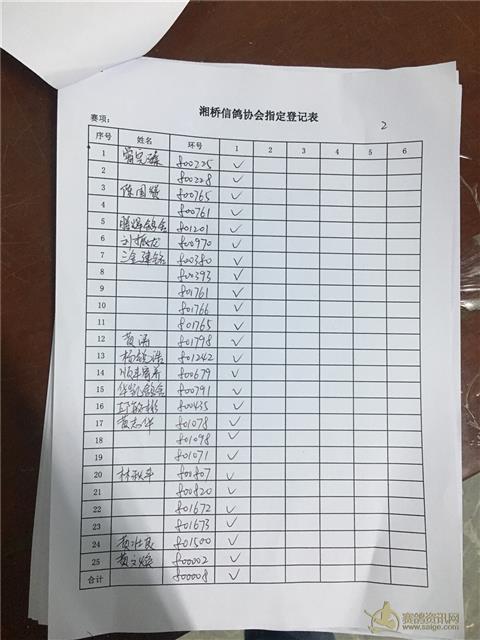 湘桥信鸽协会指定登记表
赛项： 2
序号 姓名 环号 1 2 3 4 5 6
1 800225 ✓
2 800228 ✓
3 陈国 800765 ✓
4 800761 ✓
5 鸽舍 801201 ✓
6 刘振龙 800970 ✓
7 800380 ✓
8 800393 ✓
9 801761 ✓
10 801766 ✓
11 801765 ✓
12 黄涌 801798 ✓
13 801242 ✓
14 顺丰赛养 800679 ✓
15 华凯鸽舍 800791 ✓
16 800435 ✓
17 黄志伟 801078 ✓
18 801098 ✓
19 801071 ✓
20 林秋平 800807 ✓
21 800820 ✓
22 801672 ✓
23 801673 ✓
24 黄壮良 801500 ✓
25 黄文焕 800002 ✓
合计 800008 ✓
赛鸽资讯网
www.saige.com